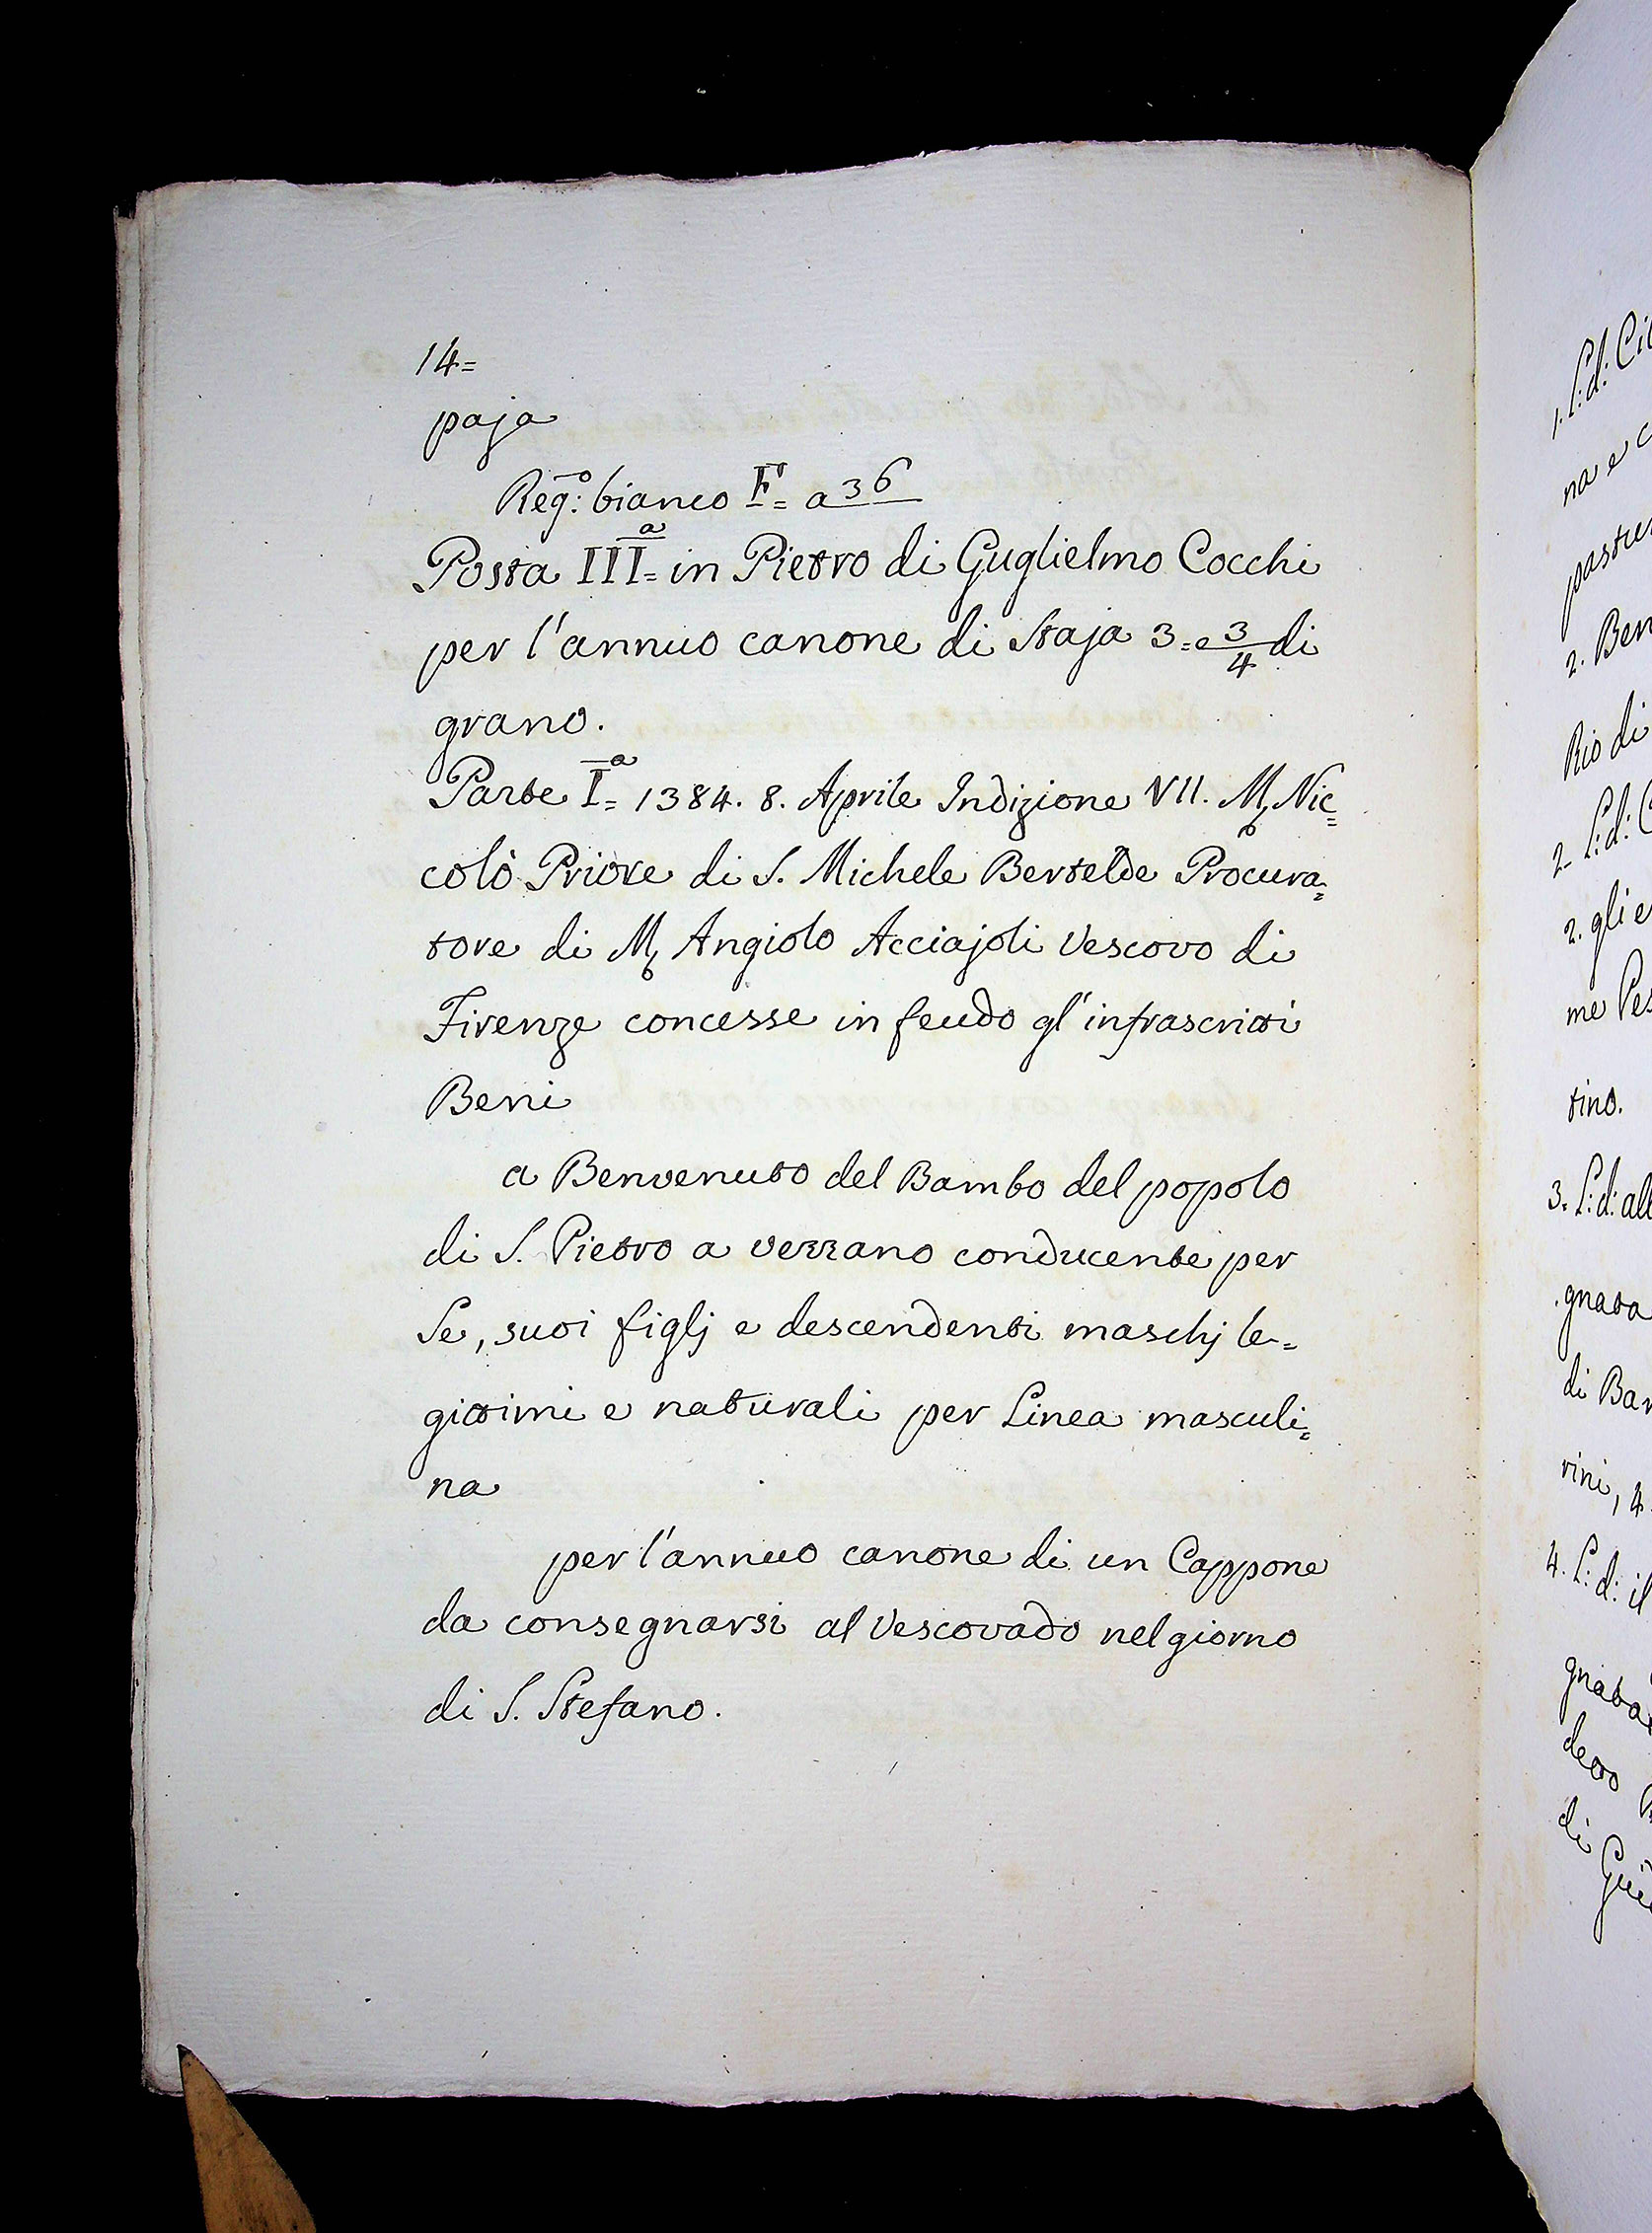 14=
paja
Reg:o bianco F= a 36
Posta III=a in Pietro di Guglielmo Cocchi
per l'annuo canone di Staja 3=e 3/4 di
grano.
Parte I=a 1384. 8. Aprile Indizione VII. M, Nic=
colò Priore di S. Michele Bertelde Procura=
tore di M, Angiolo Acciajoli Vescovo di
Firenze concesse in feudo gl'infrascritti
Beni
a Benvenuto del Bambo del popolo
di S. Pietro a verrano conducente per
Se, suoi figlj e descendenti maschj le-=
gittimi e naturali per Linea masculi=
na
per l'annuo canone di un Cappone
da consegnarsi al Vescovado nel giorno
di S. Stefano.
1. L:d: Ci
na e c
pastu
2. Ben
Rio di
2- L:d: C
2. gli e
me Pes
tino.
3. L:d: all
gnata
di Bar
rini, 4.
4. L: d: il
gnata
detto
di Gui